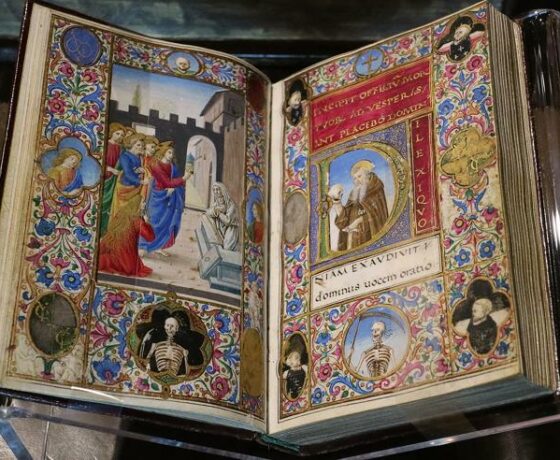 INCIPIT OFFITIŪ MOR
TVOꝜ AD VESPERAS
ANT PLACEBO DOMIN
DILEXI QVO
NIAM EXAVDIVIT
dominus uocem oratio